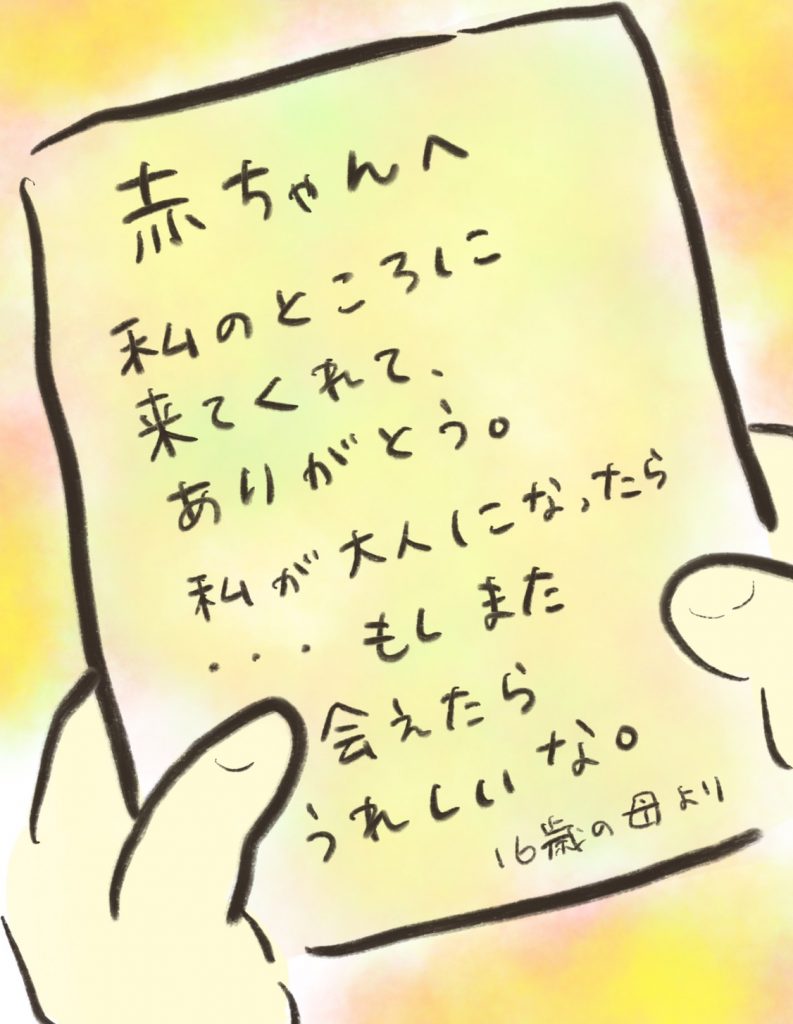 赤ちゃんへ
私のところに
来てくれて、
ありがとう。
私が大人になったら
・・・もしまた
会えたら
うれしいな。
16歳の母より